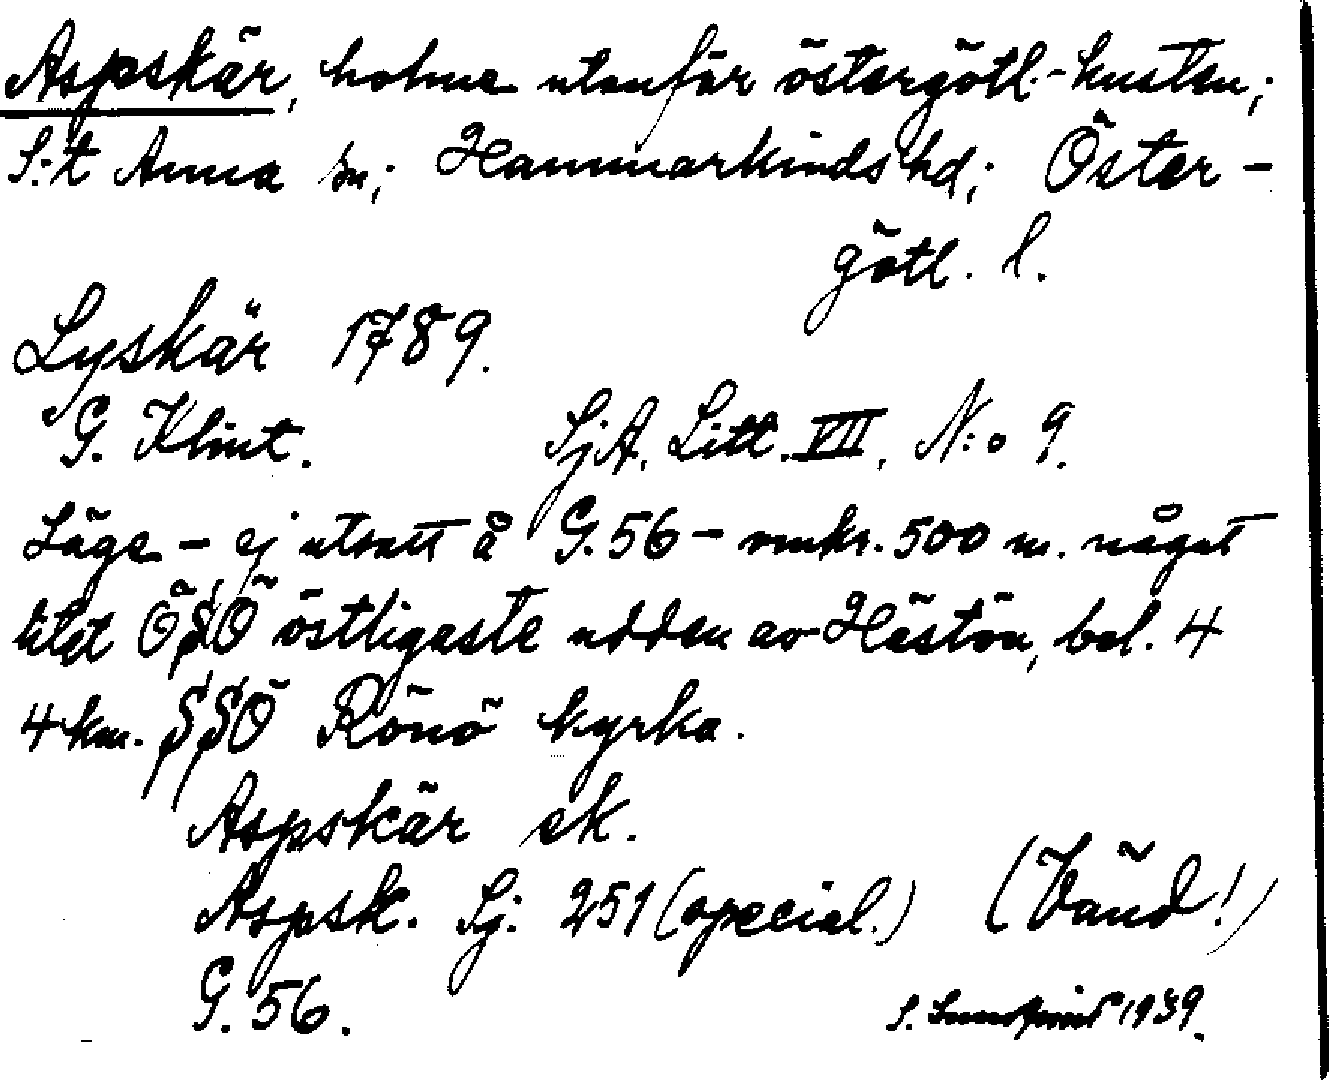 Aspskär, holme utanför östergötl.-kusten;
S:t Anna sn; Hammarkinds hd; Öster-
götl. l.
Lyskär 1789.
G. Klint. SjA. Litt. VII, N:o 9.
Läge – ej utsatt å G. 56 – omkr. 500 m. något
litet ÖSÖ östligaste udden av Hästön, bel. 4
4 km. SSÖ Rönö kyrka.
Aspskär ek.
Aspsk. Sj: 251 (special.) (Vänd!)
G. 56.
S. 1939.